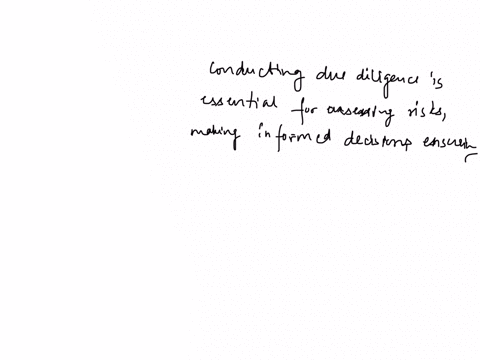 conducting due diligence is
essential for assessing risks,
making informed decisions ensurin